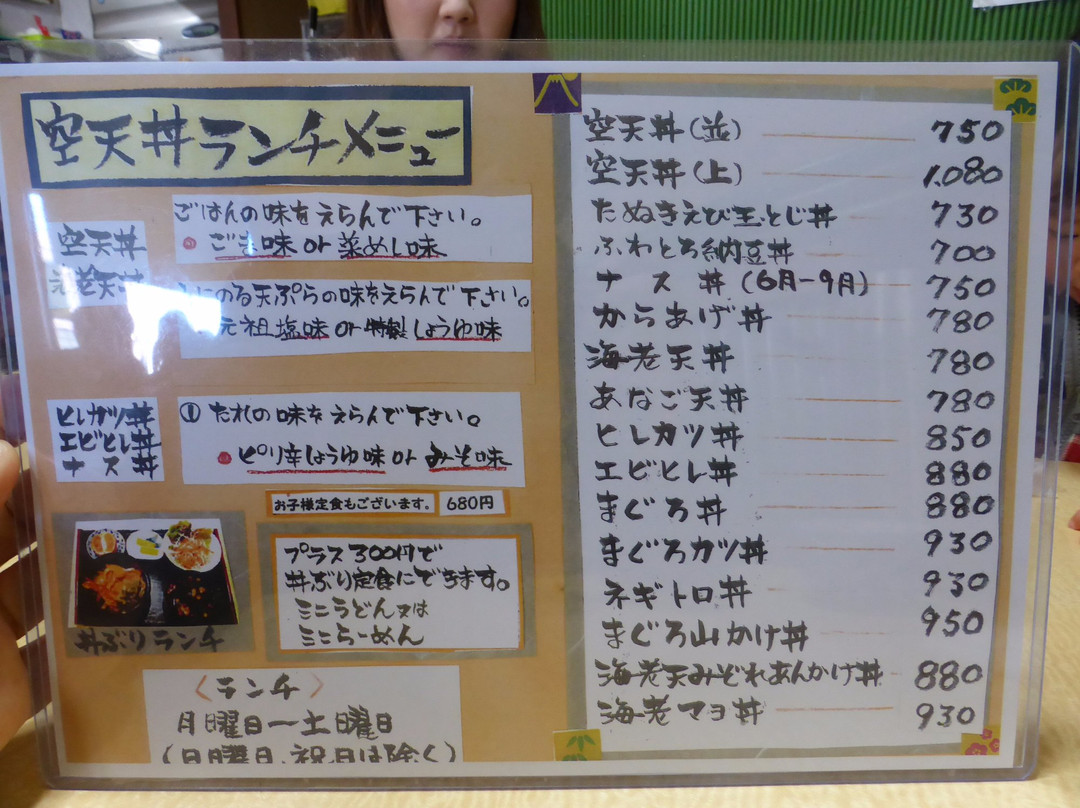 空天丼ランチメニュー
空天丼
海老天丼
ごはんの味をえらんで下さい。
ごま味 or 菜めし味
にのる天ぷらの味をえらんで下さい。
元祖塩味 or 特製しょうゆ味
ヒレカツ丼
エビヒレ丼
ナス丼
① たれの味をえらんで下さい。
ピリ辛しょうゆ味 or みそ味
お子様定食もございます。 680円
丼ぶりランチ
プラス300円で
丼ぶり定食にできます。
ミニうどん又は
ミニらーめん
〈ランチ〉
月曜日〜土曜日
(日曜日、祝日は除く)
空天丼(並) 750
空天丼(上) 1,080
たぬきえび玉とじ丼 730
ふわとろ納豆丼 700
ナス丼(6月-9月) 750
からあげ丼 780
海老天丼 780
あなご天丼 780
ヒレカツ丼 850
エビヒレ丼 880
まぐろ丼 880
まぐろカツ丼 930
ネギトロ丼 930
まぐろ山かけ丼 950
海老天みぞれあんかけ丼 880
海老マヨ丼 930